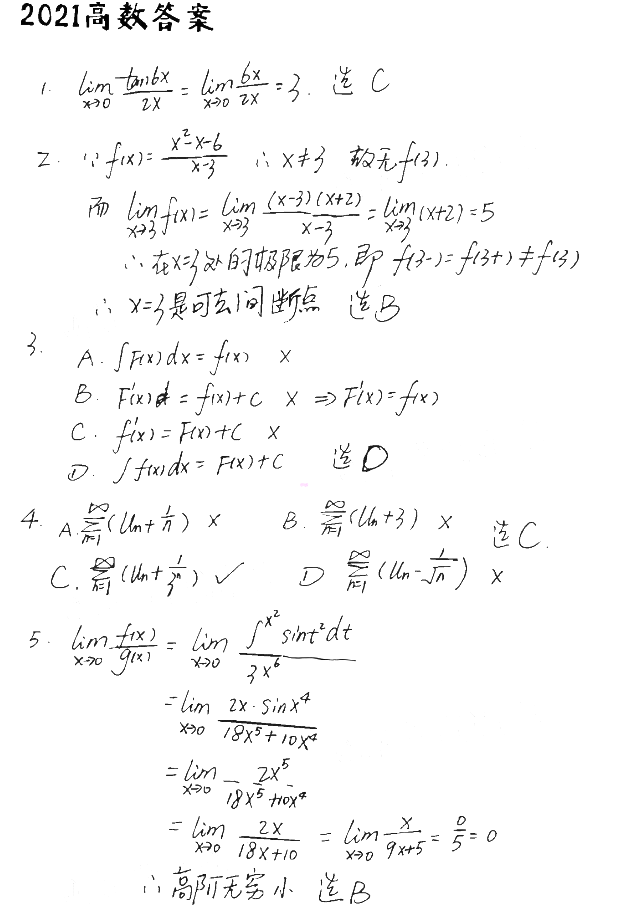 2021高数答案
1. lim x→0 tan6x/2x = lim x→0 6x/2x = 3. 选 C
2. ∵ f(x) = (x²-x-6)/(x-3) ∴ x≠3 故无f(3).
而 lim x→3 f(x) = lim x→3 (x-3)(x+2)/(x-3) = lim x→3 (x+2) = 5
∴ 在x=3处的极限为5, 即 f(3-) = f(3+) ≠ f(3)
∴ x=3是可去间断点 选B
3.
A. ∫F(x)dx = f(x) ×
B. F'(x) = f(x)+C × ⇒ F'(x) = f(x)
C. f'(x) = F(x)+C ×
D. ∫f(x)dx = F(x)+C 选D
4. A. ∞∑n=1 (Un+1/n) × B. ∞∑n=1 (Un+3) × 选C.
C. ∞∑n=1 (Un+1/3ⁿ) ✓ D ∞∑n=1 (Un-1/√n) ×
5. lim x→0 f(x)/g(x) = lim x→0 ∫^x² sint²dt / 3x⁶
= lim x→0 2x·sinx⁴/(18x⁵+10x⁴)
= lim x→0 2x⁵/(18x⁵+10x⁴)
= lim x→0 2x/(18x+10) = lim x→0 x/(9x+5) = 0/5 = 0
∴ 高阶无穷小 选B